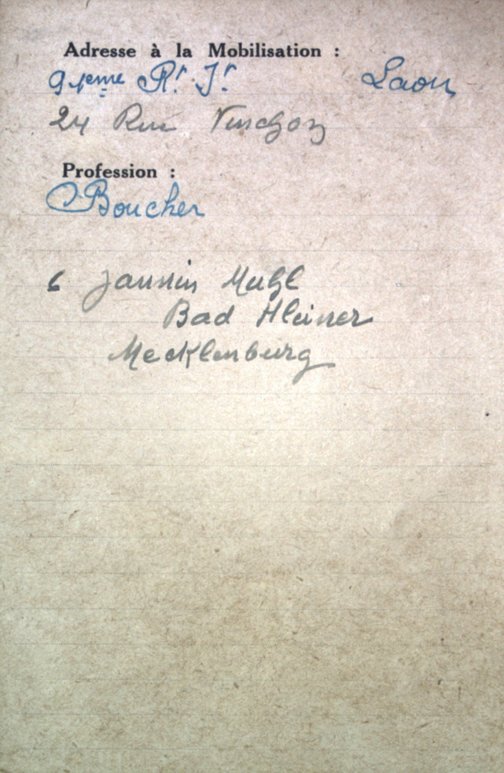 Adresse à la Mobilisation :
91eme Rt. Jr. Laon
24 Rue
Profession :
Boucher
Jannin Muhl
Bad Kleinen
Mecklenburg